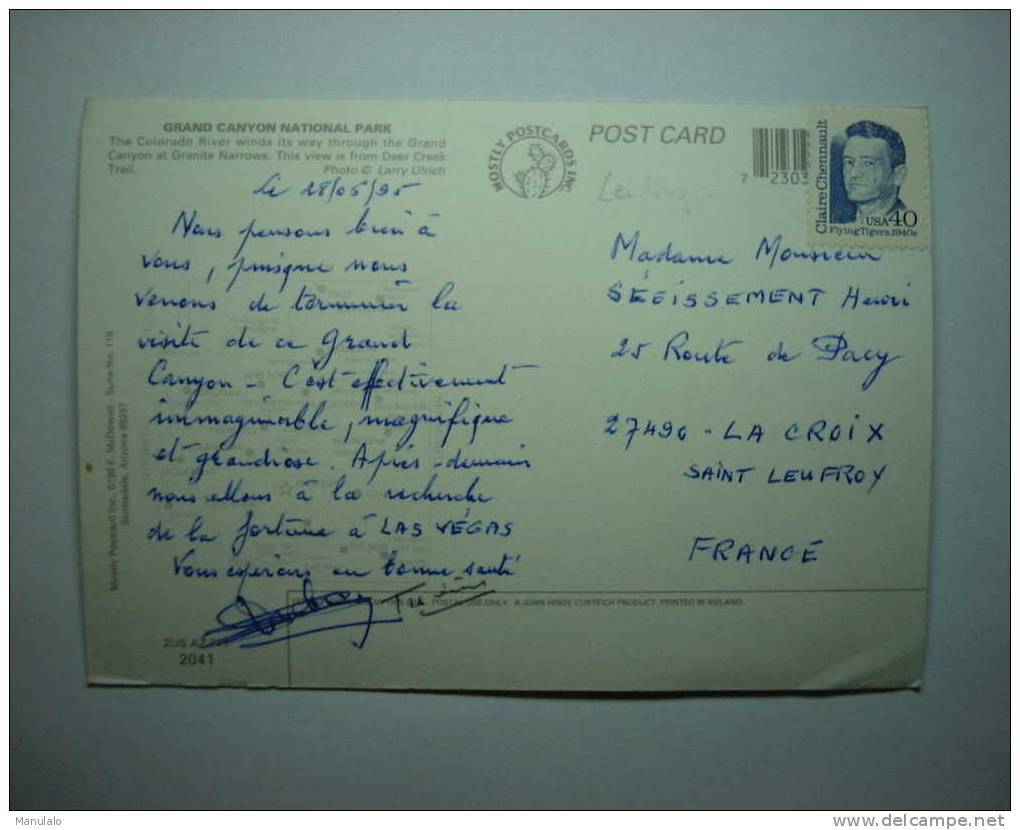 GRAND CANYON NATIONAL PARK
The Colorado River winds its way through the Grand
Canyon at Granite Narrows. This view is from Deer Creek
Trail. Photo © Larry Ulrich
MOSTLY POSTCARDS INC.
POST CARD
7 2303
Claire Chennault
USA 40
Flying Tigers, 1940s
Le 28/05/95
Nous pensons bien à
vous, puisque nous
venons de terminer la
visite de ce Grand
Canyon - C'est effectivement
immaginable, magnifique
et grandiose. Après-demain
nous allons à la recherche
de la fortune à LAS VÉGAS
Vous espérons en bonne santé
Madame Monsieur
Henri
25 Route de Pacy
27490 - LA CROIX
SAINT LEUFROY
FRANCE
Mostly Postcard Inc. 6136 E. McDowell - Suite No. 118
Scottsdale, Arizona 85257
POSTAL USE ONLY. A JOHN HINDE CURTEICH PRODUCT. PRINTED IN IRELAND.
2041
Manulalo
delcampe.net